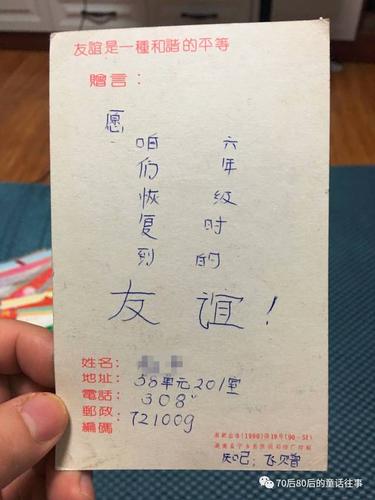 友誼是一種和諧的平等
贈言：
愿
咱们恢复到
六年级时的
友谊！
姓名：
地址：58单元201室
電話：308
郵政編碼：721009
知己：飞赠
70后80后的童话往事